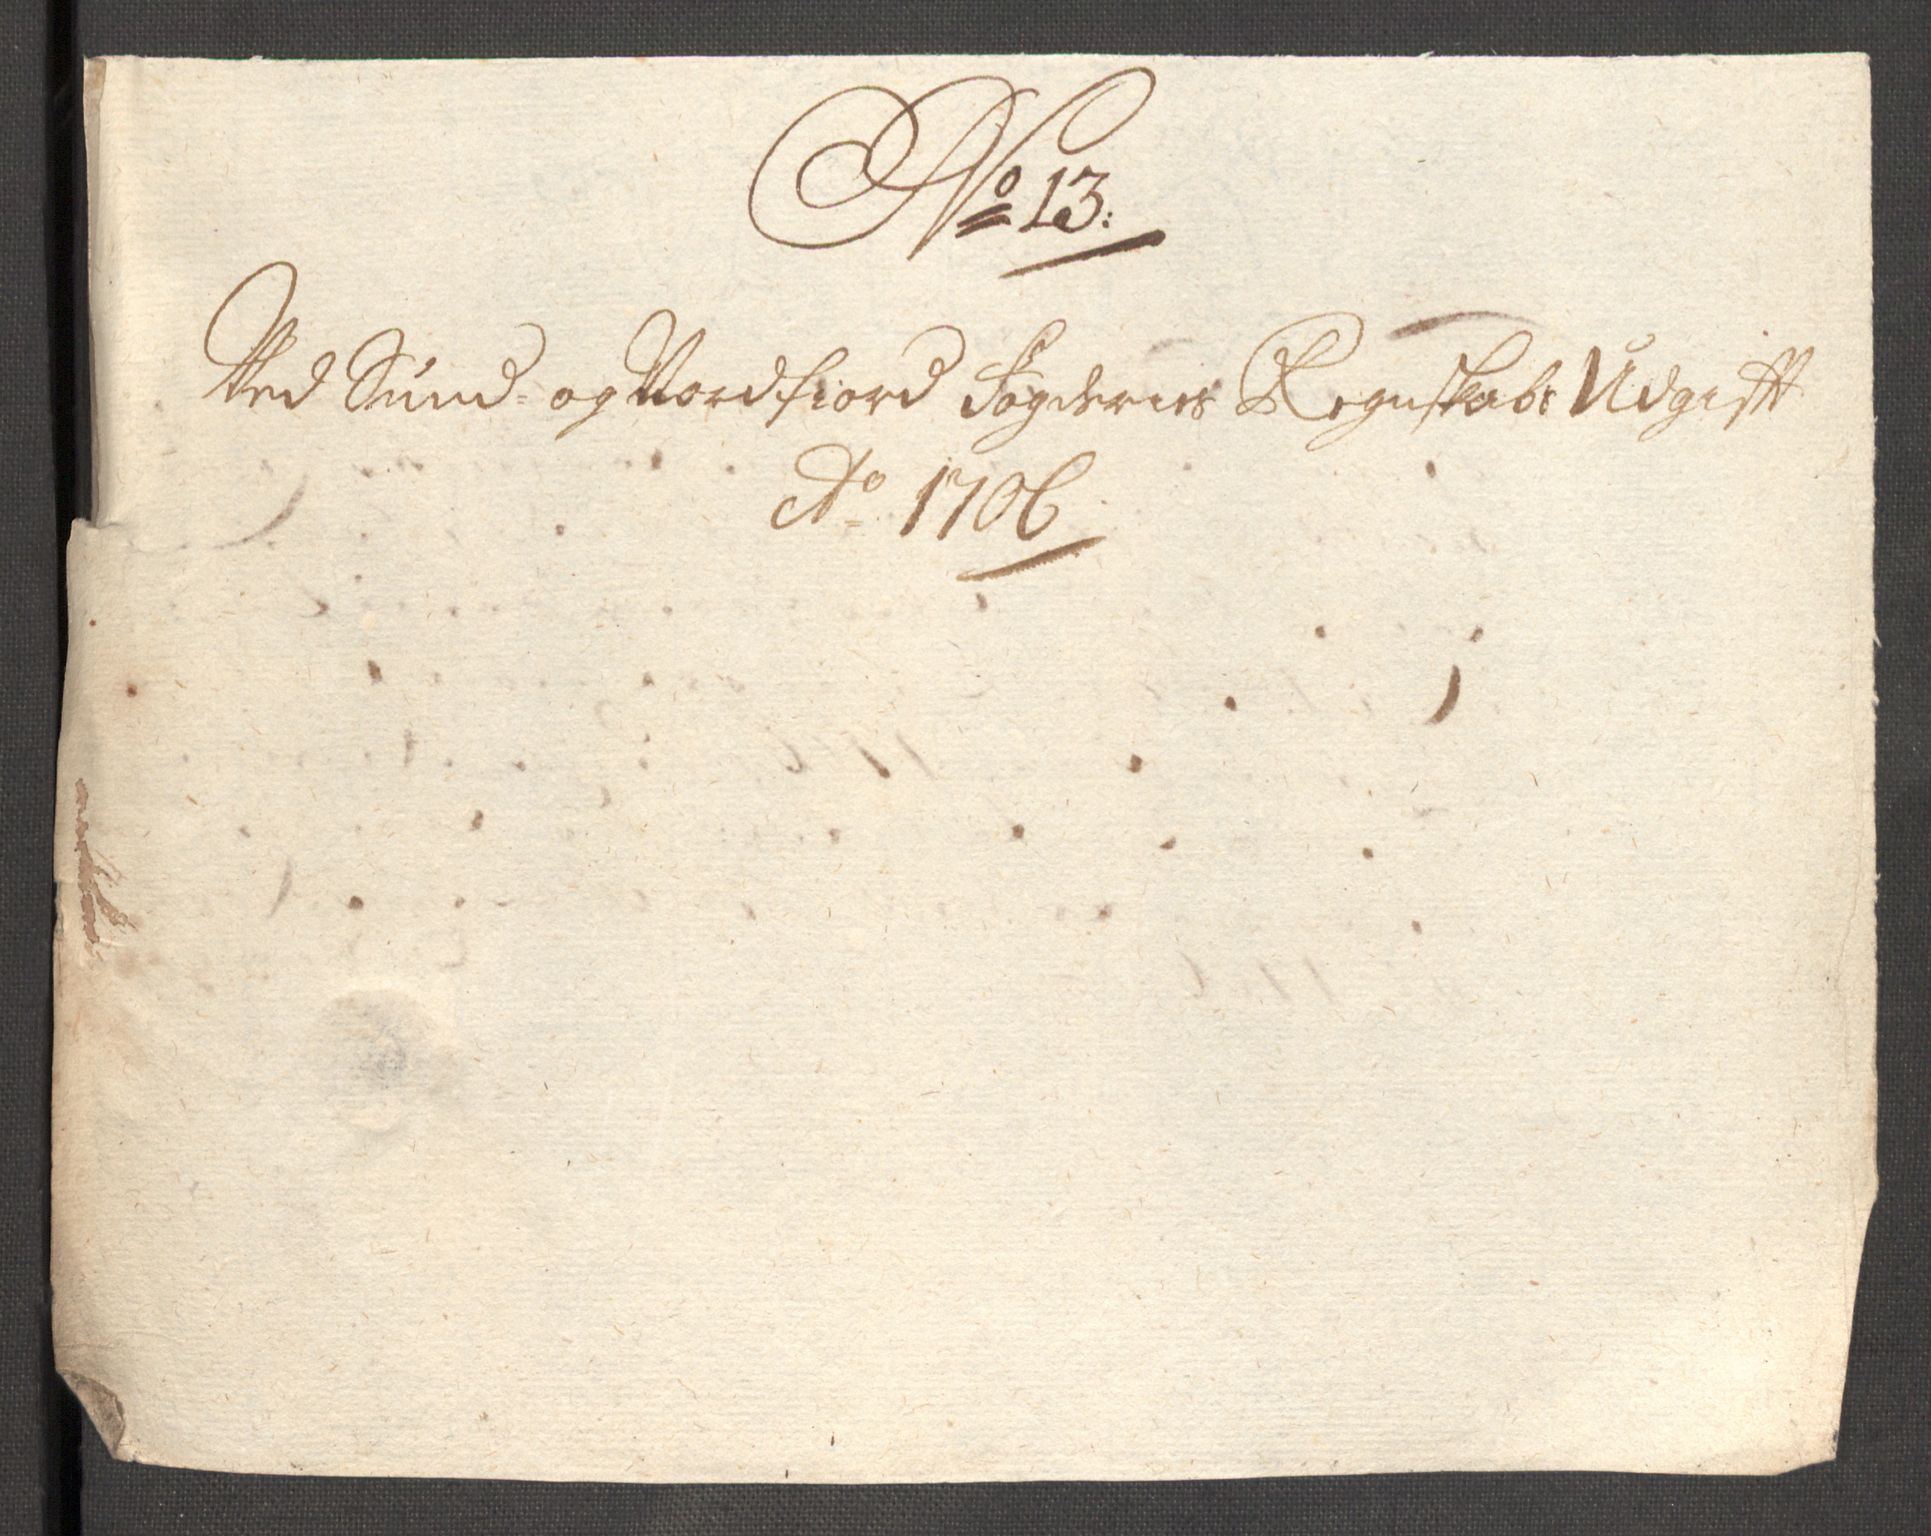 No 13:
Ved Sund- og Nordfiord Fogderies Regnskabs Udgift
Ao 1706